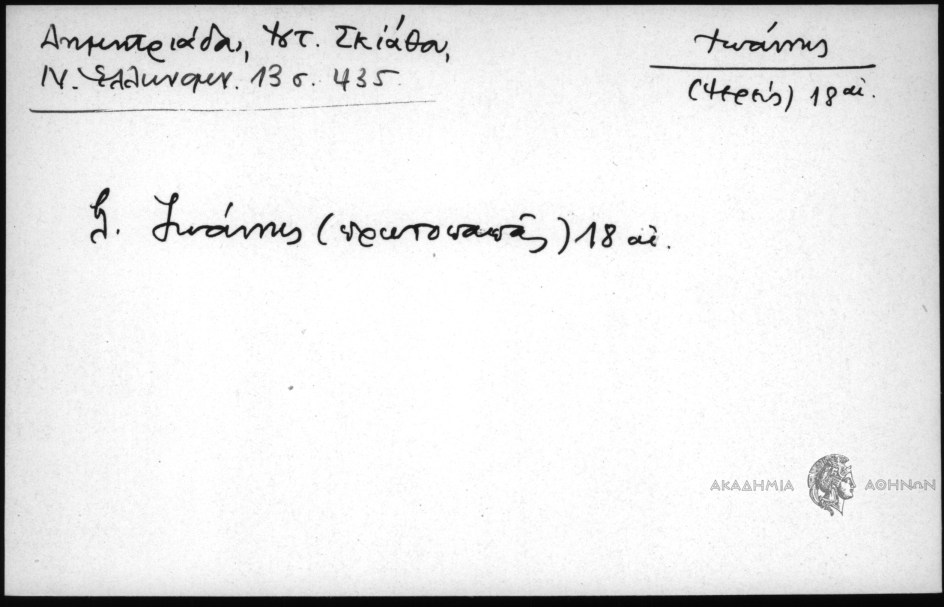 Δημητριάδου, Ιστ. Σκιάθου,
Ν. Ἑλληνομν. 13 σ. 435
Ἰωάννης
(Ἱερεύς) 18 αἰ.
Ἰωάννης (πρωτοπαπᾶς) 18 αἰ.
ΑΚΑΔΗΜΙΑ ΑΘΗΝΩΝ